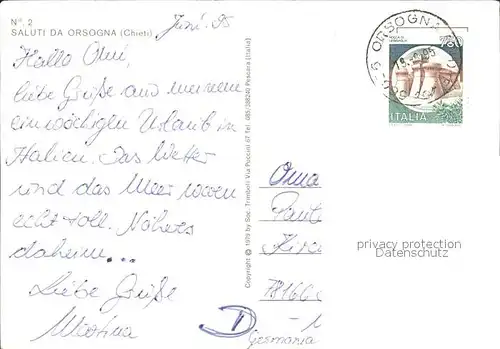 N° 2
SALUTI DA ORSOGNA (Chieti)
Juni. 95
Hallo Omi,
liebe Grüße aus meinem
einwöchigen Urlaub in
Italien. Das Wetter
und das Meer waren
echt toll. Näheres
daheim...
Liebe Grüße
Martina
Copyright © 1979 by Soc. Trimboli Via Puccini 67 Tel. 085/388240 Pescara (Italia)
ORSOGNA
ITALIA
Oma
78166
D
Germania
privacy protection
Datenschutz